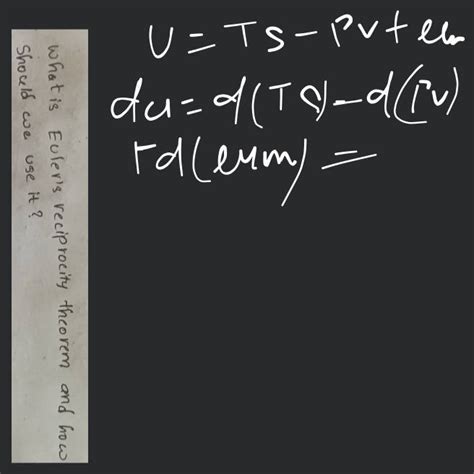 What is Euler's reciprocity theorem and how
Should we use it?
U = TS - PV + eum
du = d(TS) - d(PV)
+d(eum) =